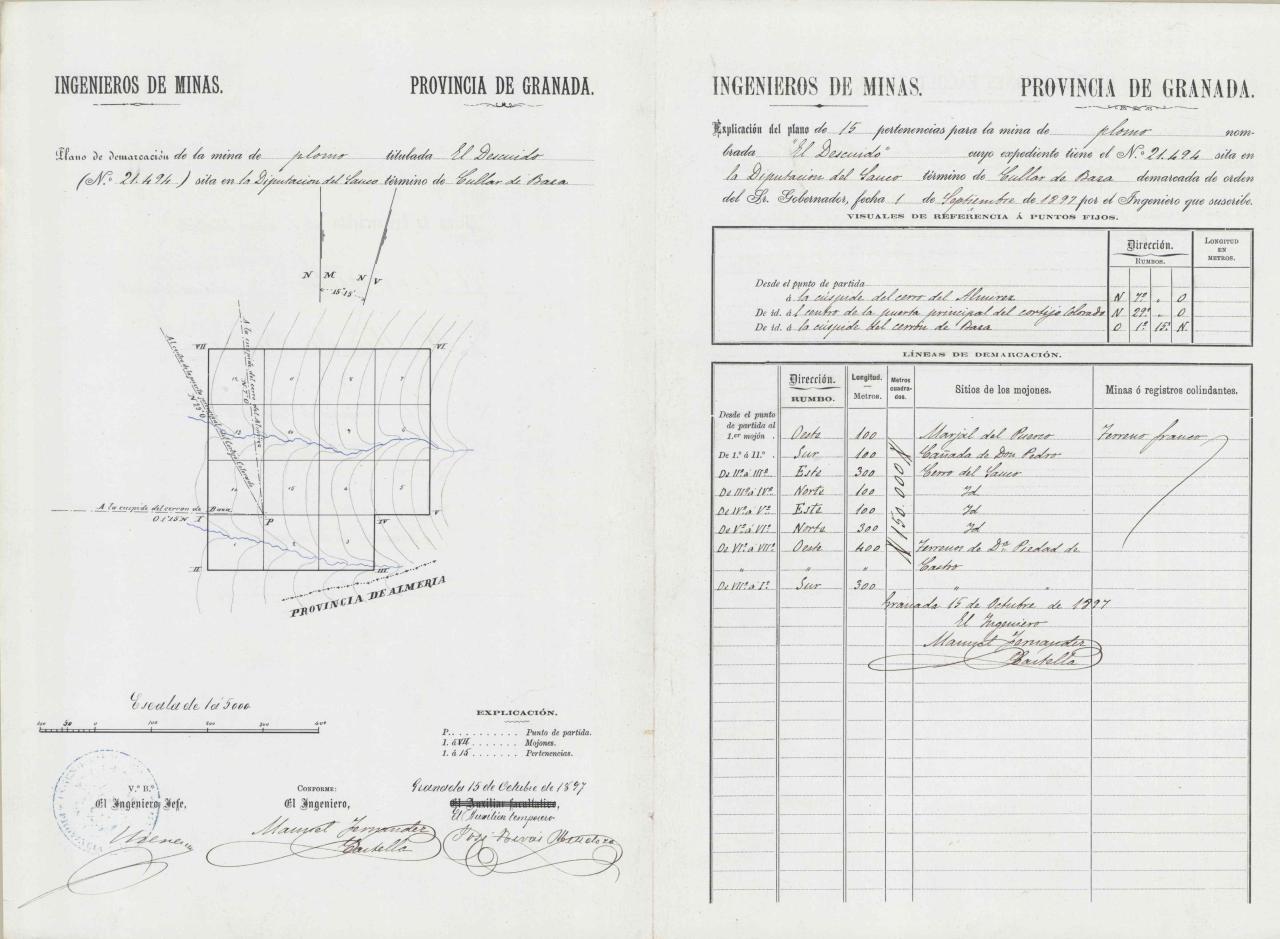 INGENIEROS DE MINAS. PROVINCIA DE GRANADA.
Plano de demarcación de la mina de plomo titulada El Descuido
(N.º 21.494) sita en la Diputacion del Sauco término de Cullar de Baza
N M N V
15º15'
VII VI
A la cuspide del cerro del Almirez
N 7º O
Al centro de la puerta principal del Cortijo Colorado
N 29º O
A la cuspide del cerron de Baza
O 1º 15' N
I P IV V
II III
PROVINCIA DE ALMERIA
Escala de 1 á 5000
100 50 0 100 200 300 400
EXPLICACIÓN.
P. . . . . . . . . . Punto de partida.
I. á VII . . . . . . . Mojones.
1. á 15 . . . . . . . Pertenencias.
Granada 15 de Octubre de 1897
V.º B.º
El Ingeniero Jefe,
CONFORME:
El Ingeniero,
Manuel Fernandez
Castella
El Auxiliar facultativo,
El Auxiliar temporero
José Rivas
INGENIEROS DE MINAS. PROVINCIA DE GRANADA.
Explicación del plano de 15 pertenencias para la mina de plomo nom-
brada "El Descuido" cuyo expediente tiene el N.º 21.494 sita en
la Diputacion del Sauco término de Cullar de Baza demarcada de orden
del Sr. Gobernador, fecha 1 de Septiembre de 1897 por el Ingeniero que suscribe.
VISUALES DE REFERENCIA Á PUNTOS FIJOS.
Dirección.
RUMBOS.
LONGITUD EN METROS.
Desde el punto de partida
á la cúspide del cerro del Almirez N 7º „ O
De id. á el centro de la puerta principal del cortijo Colorado N 29º „ O
De id. á la cúspide del cerrón de Baza O 1º 15' N.
LÍNEAS DE DEMARCACIÓN.
Dirección. RUMBO.
Longitud. — Metros.
Metros cuadrados.
Sitios de los mojones.
Minas ó registros colindantes.
Desde el punto
de partida al
1.er mojón . Oeste 100 Marjal del Puerco Terreno franco
De I.º á II.º . Sur 100 Cañada de Don Pedro
De IIº á IIIº Este 300 Cerro del Sauco
De IIIº á IVº Norte 100 Id
De IVº á Vº Este 100 Id
De Vº á VIº Norte 300 Id
De VIº á VIIº Oeste 400 Terrenos de Dª Piedad de
„ „ „ Castro
De VIIº á Iº Sur 300 „ „
150.000
Granada 15 de Octubre de 1897
El Ingeniero
Manuel Fernandez
Castella